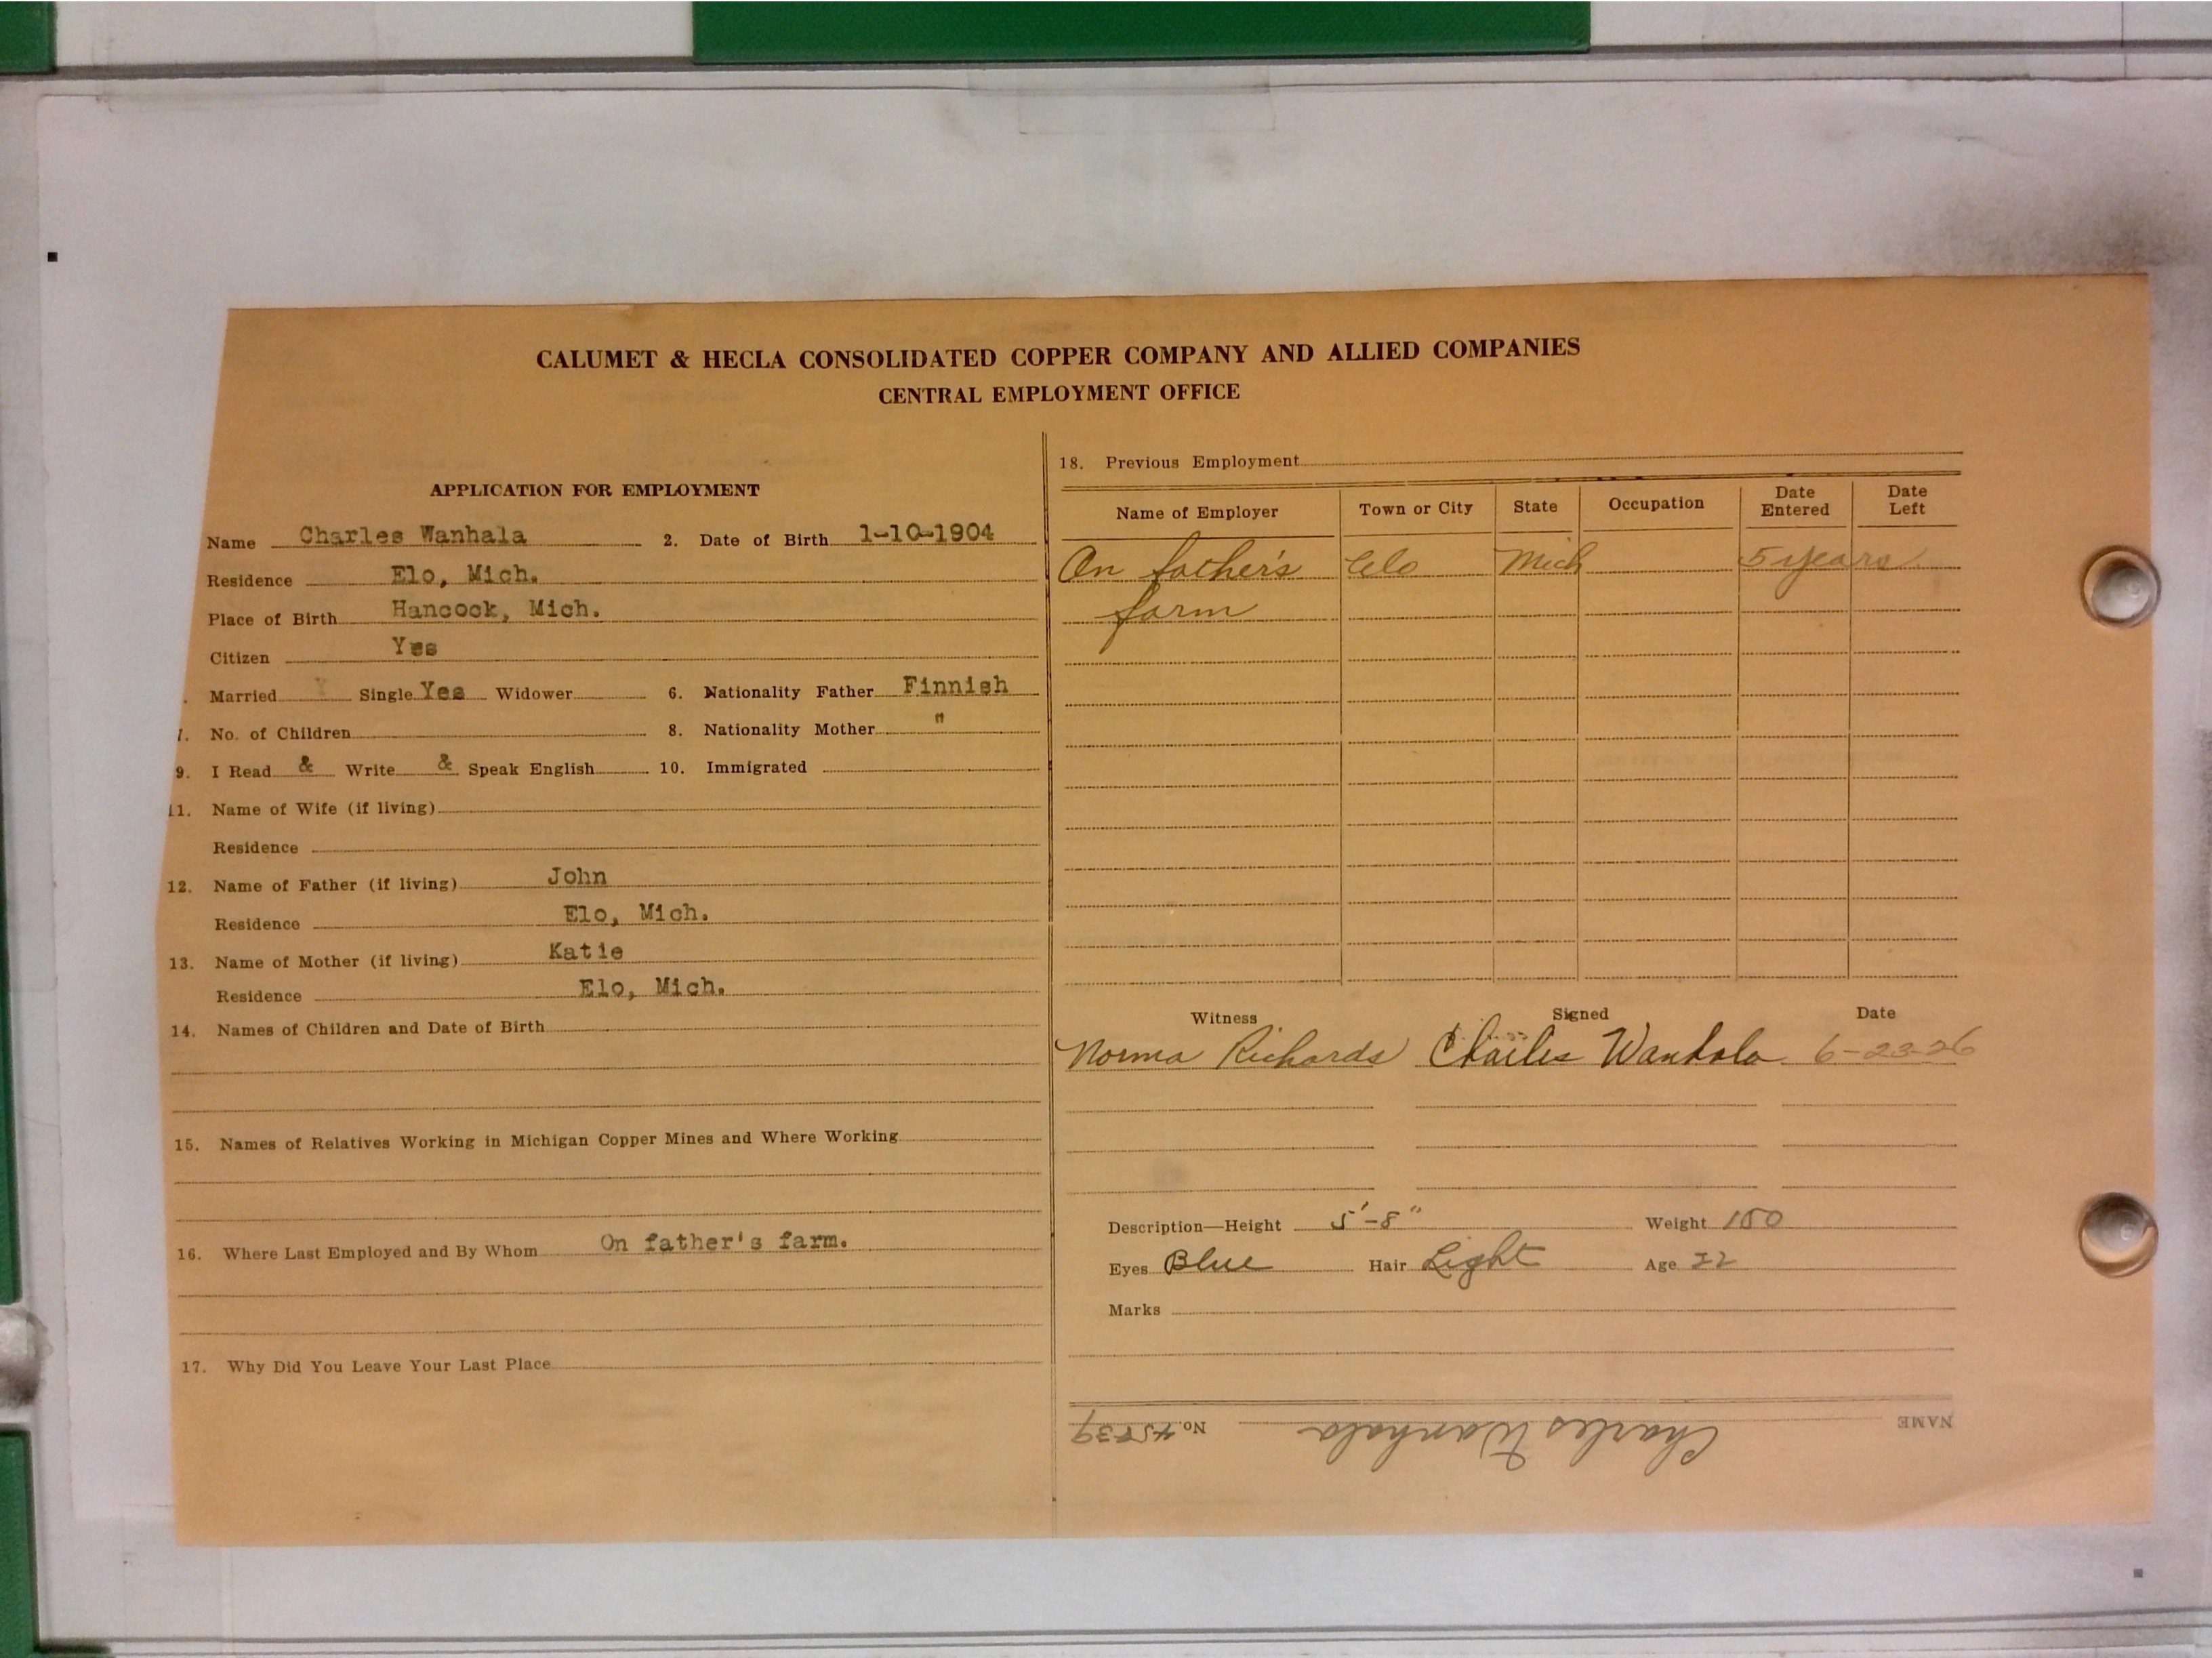 CALUMET & HECLA CONSOLIDATED COPPER COMPANY AND ALLIED COMPANIES
CENTRAL EMPLOYMENT OFFICE
APPLICATION FOR EMPLOYMENT
Name Charles Wanhala 2. Date of Birth 1-10-1904
Residence Elo, Mich.
Place of Birth Hancock, Mich.
Citizen Yes
. Married Single Yes Widower 6. Nationality Father Finnish
7. No. of Children 8. Nationality Mother "
9. I Read & Write & Speak English 10. Immigrated
11. Name of Wife (if living)
Residence
12. Name of Father (if living) John
Residence Elo, Mich.
13. Name of Mother (if living) Katie
Residence Elo, Mich.
14. Names of Children and Date of Birth
15. Names of Relatives Working in Michigan Copper Mines and Where Working
16. Where Last Employed and By Whom On father's farm.
17. Why Did You Leave Your Last Place
18. Previous Employment
Name of Employer Town or City State Occupation Date Entered Date Left
On father's Elo Mich 5 years
farm
Witness Signed Date
Norma Richards Charles Wanhala 6-23-26
Description—Height 5'-8" Weight 150
Eyes Blue Hair Light Age 22
Marks
NAME Charles Wanhala No.